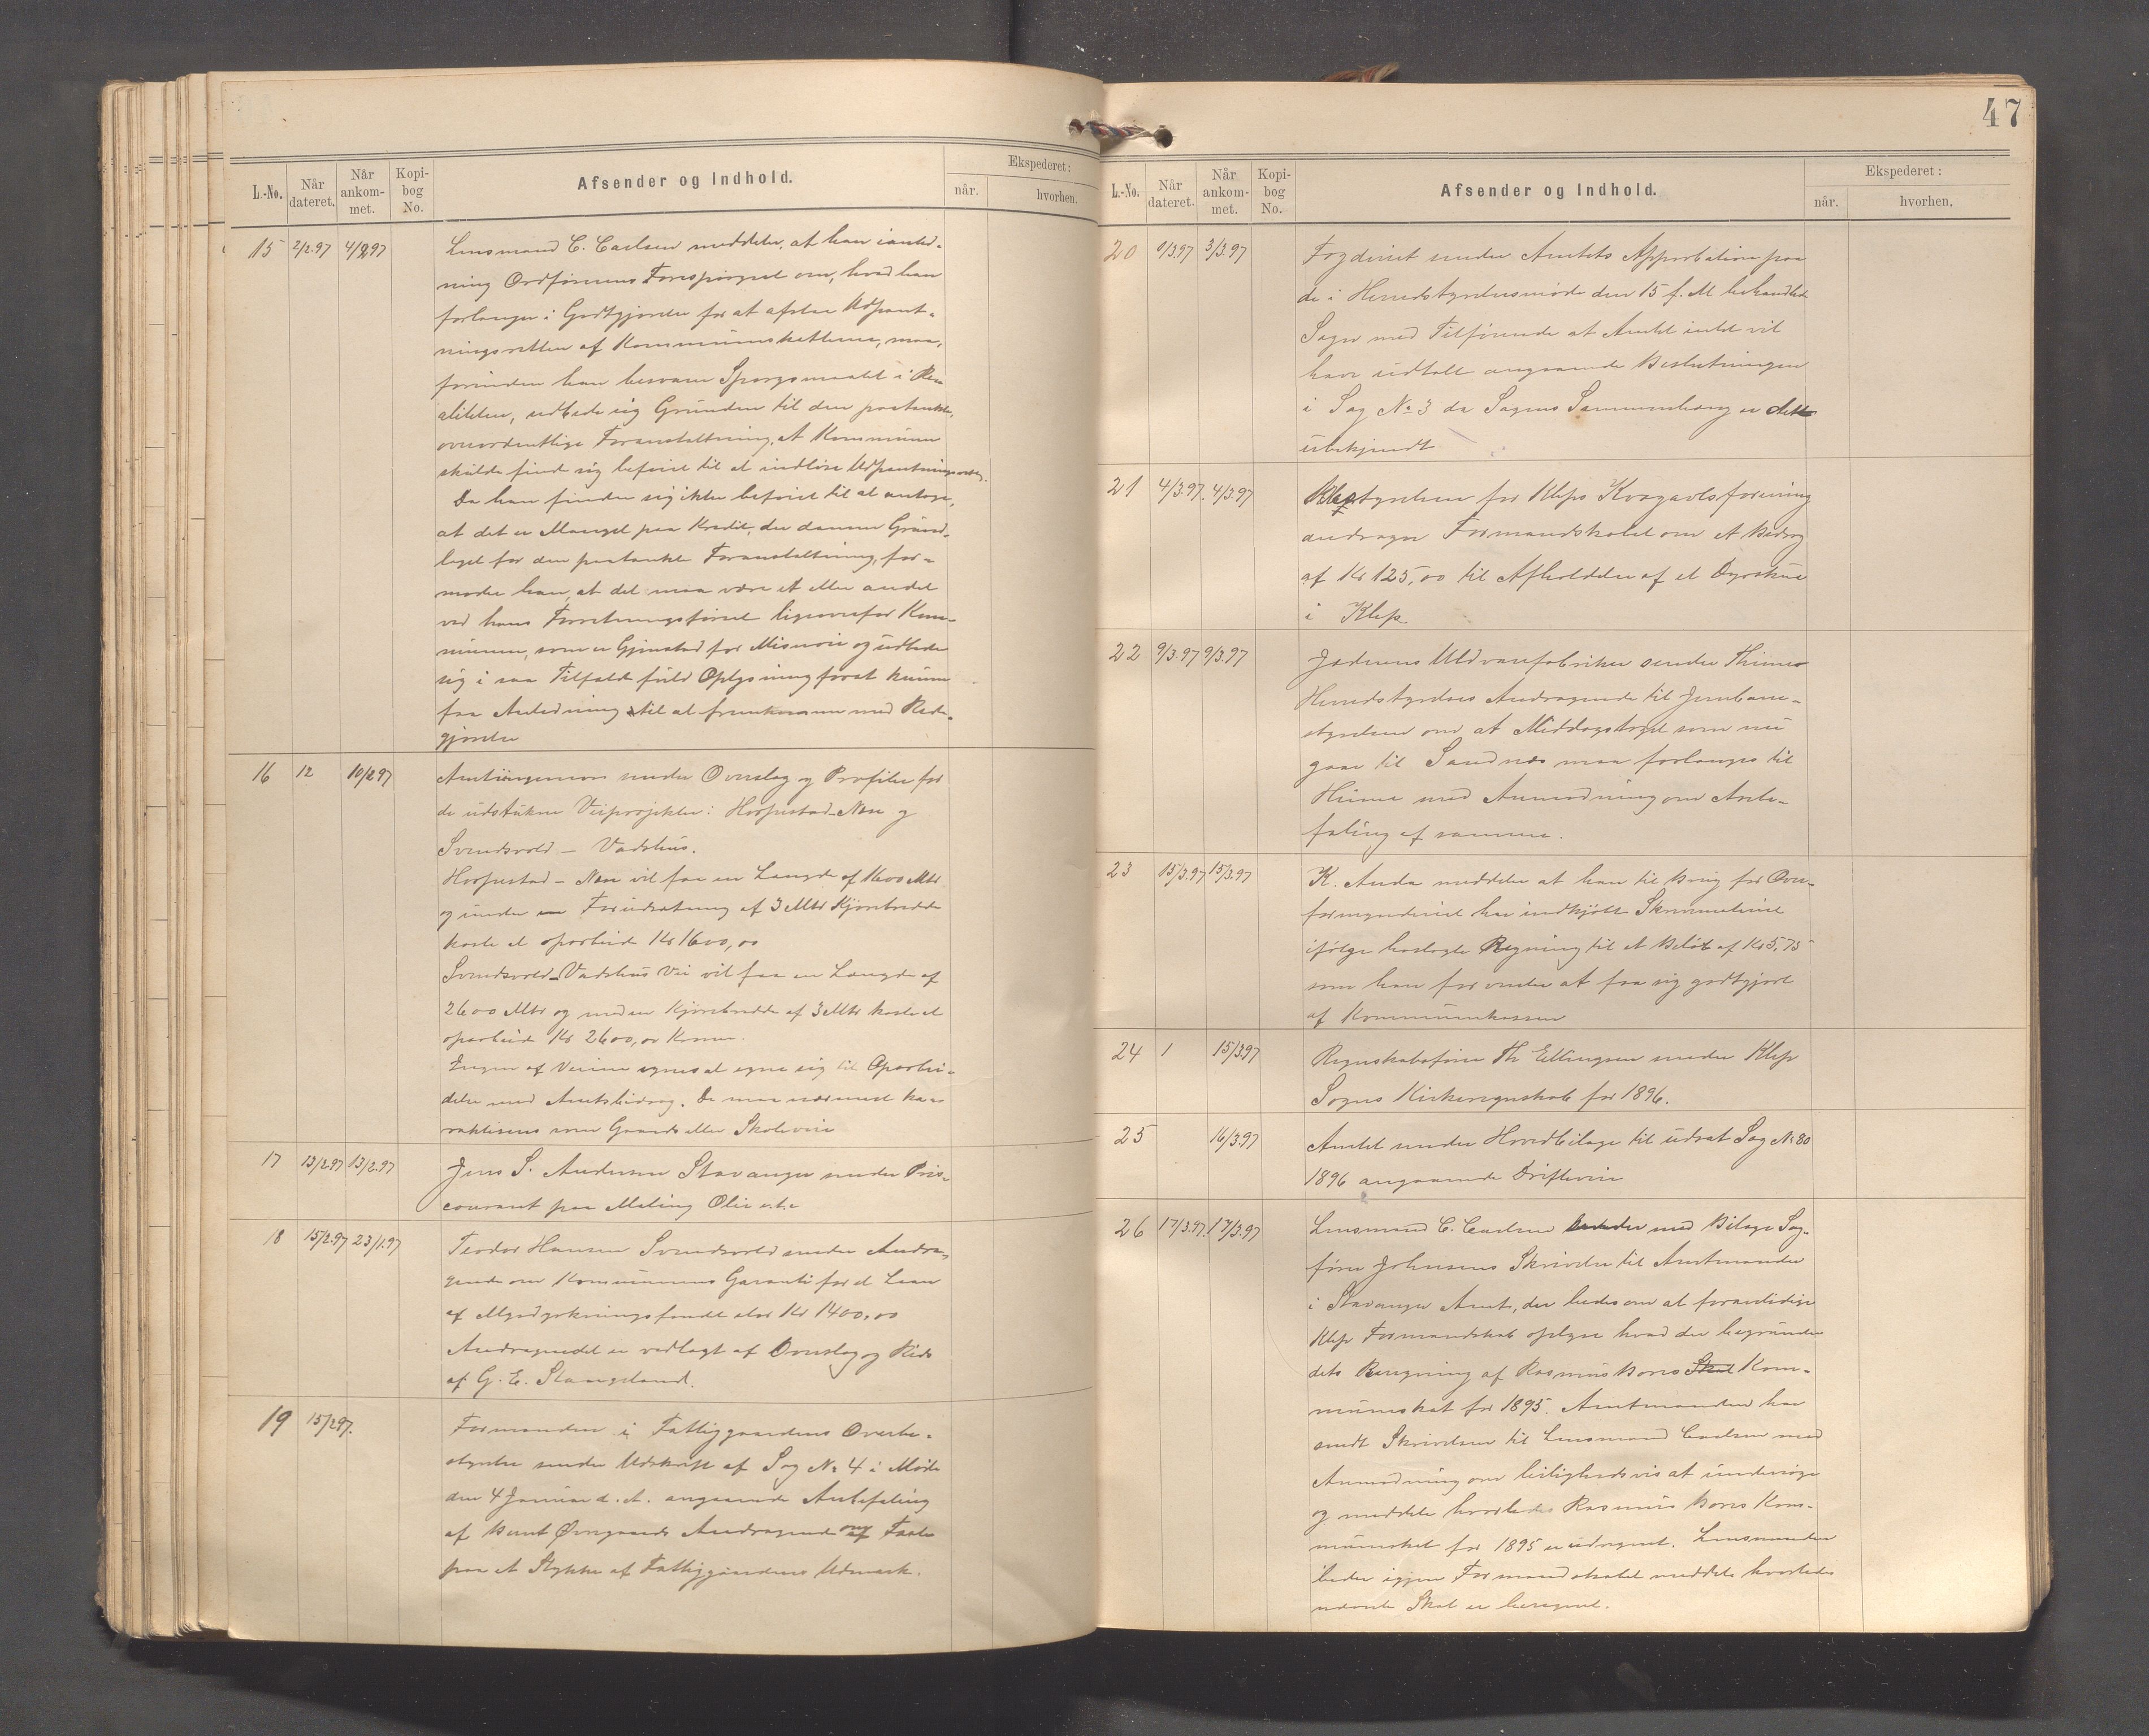 47
L.-No.
Når dateret.
Når ankom-met.
Kopi-bog No.
Afsender og Indhold.
Ekspederet:
når.
hvorhen.
15 2/2.97 4/2.97 Lensmand C. Carlsen meddeler, at han i anled-
ning Ordførerens Forespørgsel om, hvad han
forlanger i Godtgjørelse for at afstaa Udpant-
ningsretten af Kommuneskatterne, maa,
forinden han besvarer Spørgsmaalet i Rea-
liteten, udbede sig Grunden til den paatænkte,
overordentlige Foranstaltning, at Kommunen
skulde finde sig beføiet til at indløse Udpantningsretten.
Da han finder sig ikke beføiet til at antage,
at det er Mangel paa Kredit, der danner Grund-
laget for den paatænkte Foranstaltning, for-
moder han, at det maa være et eller andet
ved hans Forretningsførsel ligeoverfor Kom-
munen, som er Gjenstand for Misnøie og udbeder
sig i saa Tilfælde fuld Oplysning forat kunne
faa Anledning til at fremkomme med Rede-
gjørelse
16 12 10/2.97 Amtsingeniøren sender Overslag og Profiler for
de udstukne Veiprosjekter: Horpestad-Næse og
Svendsvold - Vadshus.
Horpestad - Næse vil faa en Længde af 1600 Mtr
og under Forudsætning af 3 Mtr Kjørebredde
koste at oparbeide Kr 1600,00
Svendsvold-Vadshus Vei vil faa en Længde af
2600 Mtr og med en Kjørebredde af 3 Mtr koste at
oparbeide Kr 2600,00 Kroner.
Ingen af Veiene synes at egne sig til Oparbei-
delse med Amtsbidrag. De maa nærmest ka-
rakteriseres som Gaards eller Skoleveie
17 13/2.97 13/2.97 Jens S. Andersen Stavanger sender Pris-
courant paa Maling Olie etc
18 15/2.97 23/1.97 Teodor Hansen Svendsvold sender Andra-
gende om Kommunens Garanti for et Laan
af Myrdyrkningsfondet stor Kr 1400,00
Andragendet er vedlagt af Overslag og Rids
af G. E. Stangeland.
19 15/2.97. Formanden i Fattiggaardens Overbe-
styrelse sender Udskrift af Sag No 4 i Møde
den 4 Januar d. A. angaaende Anbefaling
af Bernt Øvregaards Andragende om Feste
paa et Stykke af Fattiggaardens Udmark.
L.-No.
Når dateret.
Når ankom-met.
Kopi-bog No.
Afsender og Indhold.
Ekspederet:
når.
hvorhen.
20 1/3.97 3/3.97 Fogderiet sender Amtets Approbation paa
de i Herredstyrelsesmøde den 15 f. M behandlede
Sager med Tilføiende at Amtet intet vil
have udtalt angaaende Beslutningen
i Sag No 3 da Sagens Sammenhæng er dette
ubekjendt
21 4/3.97. 4/3.97 Bestyrelsen for Kleps Kvægavlsforening
andrager Formandskabet om et Bidrag
af Kr 125,00 til Afholdelse af et Dyrskue
i Klep
22 9/3.97 9/3.97 Jæderens Uldvarefabriker sender Thime
Herredstyrelses Andragende til Jernbane-
styrelsen om at Middagstoget som nu
gaar til Sandnes maa forlænges til
Thime med Anmodning om Anbe-
faling af samme.
23 15/3.97 15/3.97 K. Anda meddeler at han til Brug for Over-
formynderiet har indkjøbt Skrivemateriel
ifølge hoslagte Regning til et Beløb af Kr 5,75
som han forventer at faa sig godtgjort
af Kommunekassen
24 1 15/3.97 Regnskabsfører Th Ellingsen sender Klep
Sogns Kirkeregnskab for 1896.
25 16/3.97 Amtet sender Hovedbilage til udsat Sag No 80
1896 angaaende Drifteveie
26 17/3.97. 17/3.97 Lensmand C. Carlsen sender med Bilage Sag-
fører Johnsens Skrivelse til Amtmanden
i Stavanger Amt, der bedes om at foranledige
Klep Formandskab oplyse hvad der begrunder
dets Beregning af Rasmus Bores Kom-
muneskat for 1895. Amtmanden har
sendt Skrivelsen til Lensmand Carlsen med
Anmodning om leilighedsvis at undersøge
og meddele hvorledes Rasmus Bores Kom-
muneskat for 1895 er udregnet. Lensmanden
beder igjen Formandskabet meddele hvorledes
nævnte Skat er beregnet.